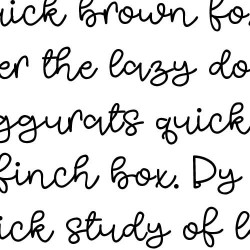 uick brown fo
er the lazy do
ggurats quick
finch box. Dy
ick study of l